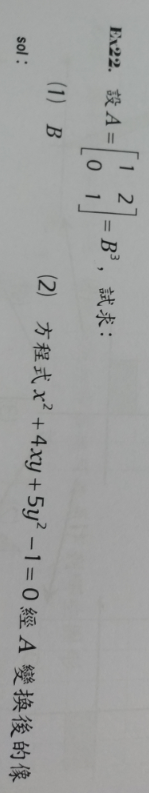 Ex22. 設 A = [1 2; 0 1] = B³，試求：
(1) B (2) 方程式 x² + 4xy + 5y² − 1 = 0 經 A 變換後的像
sol：